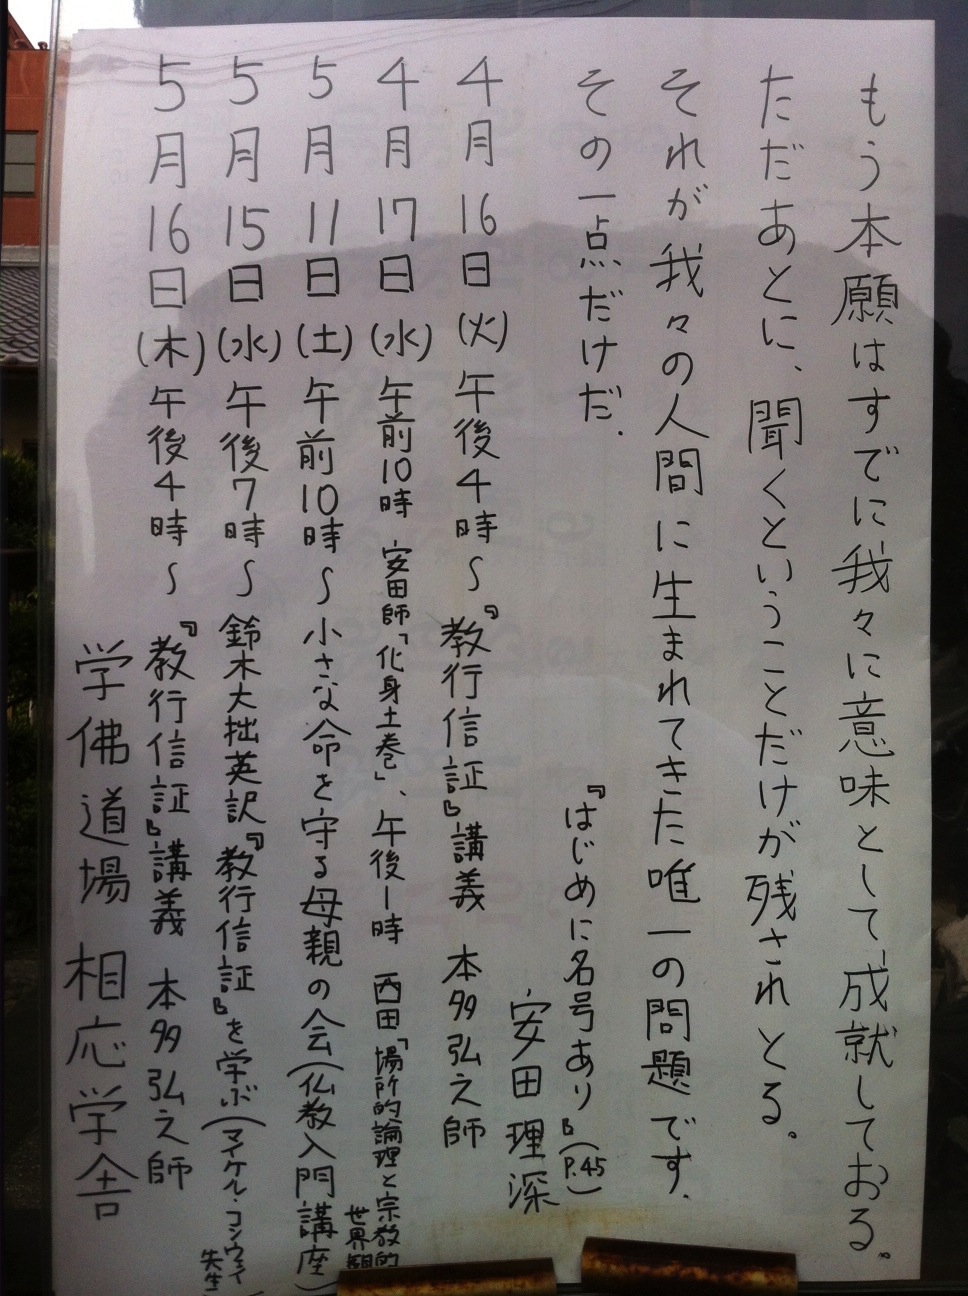 もう本願はすでに我々に意味として、成就しておる。
ただあとに、聞くということだけが残されとる。
それが我々の人間に生まれてきた唯一の問題です.
その一点だけだ.
『はじめに名号あり』(P.45)
安田理深
4月16日(火)午後4時～『教行信証』講義 本多弘之師
4月17日(水)午前10時 安田師「化身土巻」、午後1時 西田「場所的論理と宗教的
世界観
5月11日(土)午前10時～小さな命を守る母親の会(仏教入門講座)
5月15日(水)午後7時～鈴木大拙英訳『教行信証』を学ぶ(マイケル・コンウェイ
先生)
5月16日(木)午後4時～『教行信証』講義 本多弘之師
学佛道場 相応学舎